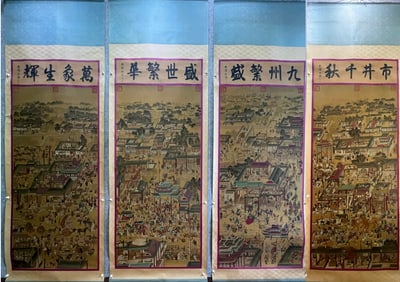 市井千秋
九州繁盛
盛世繁華
萬象生輝